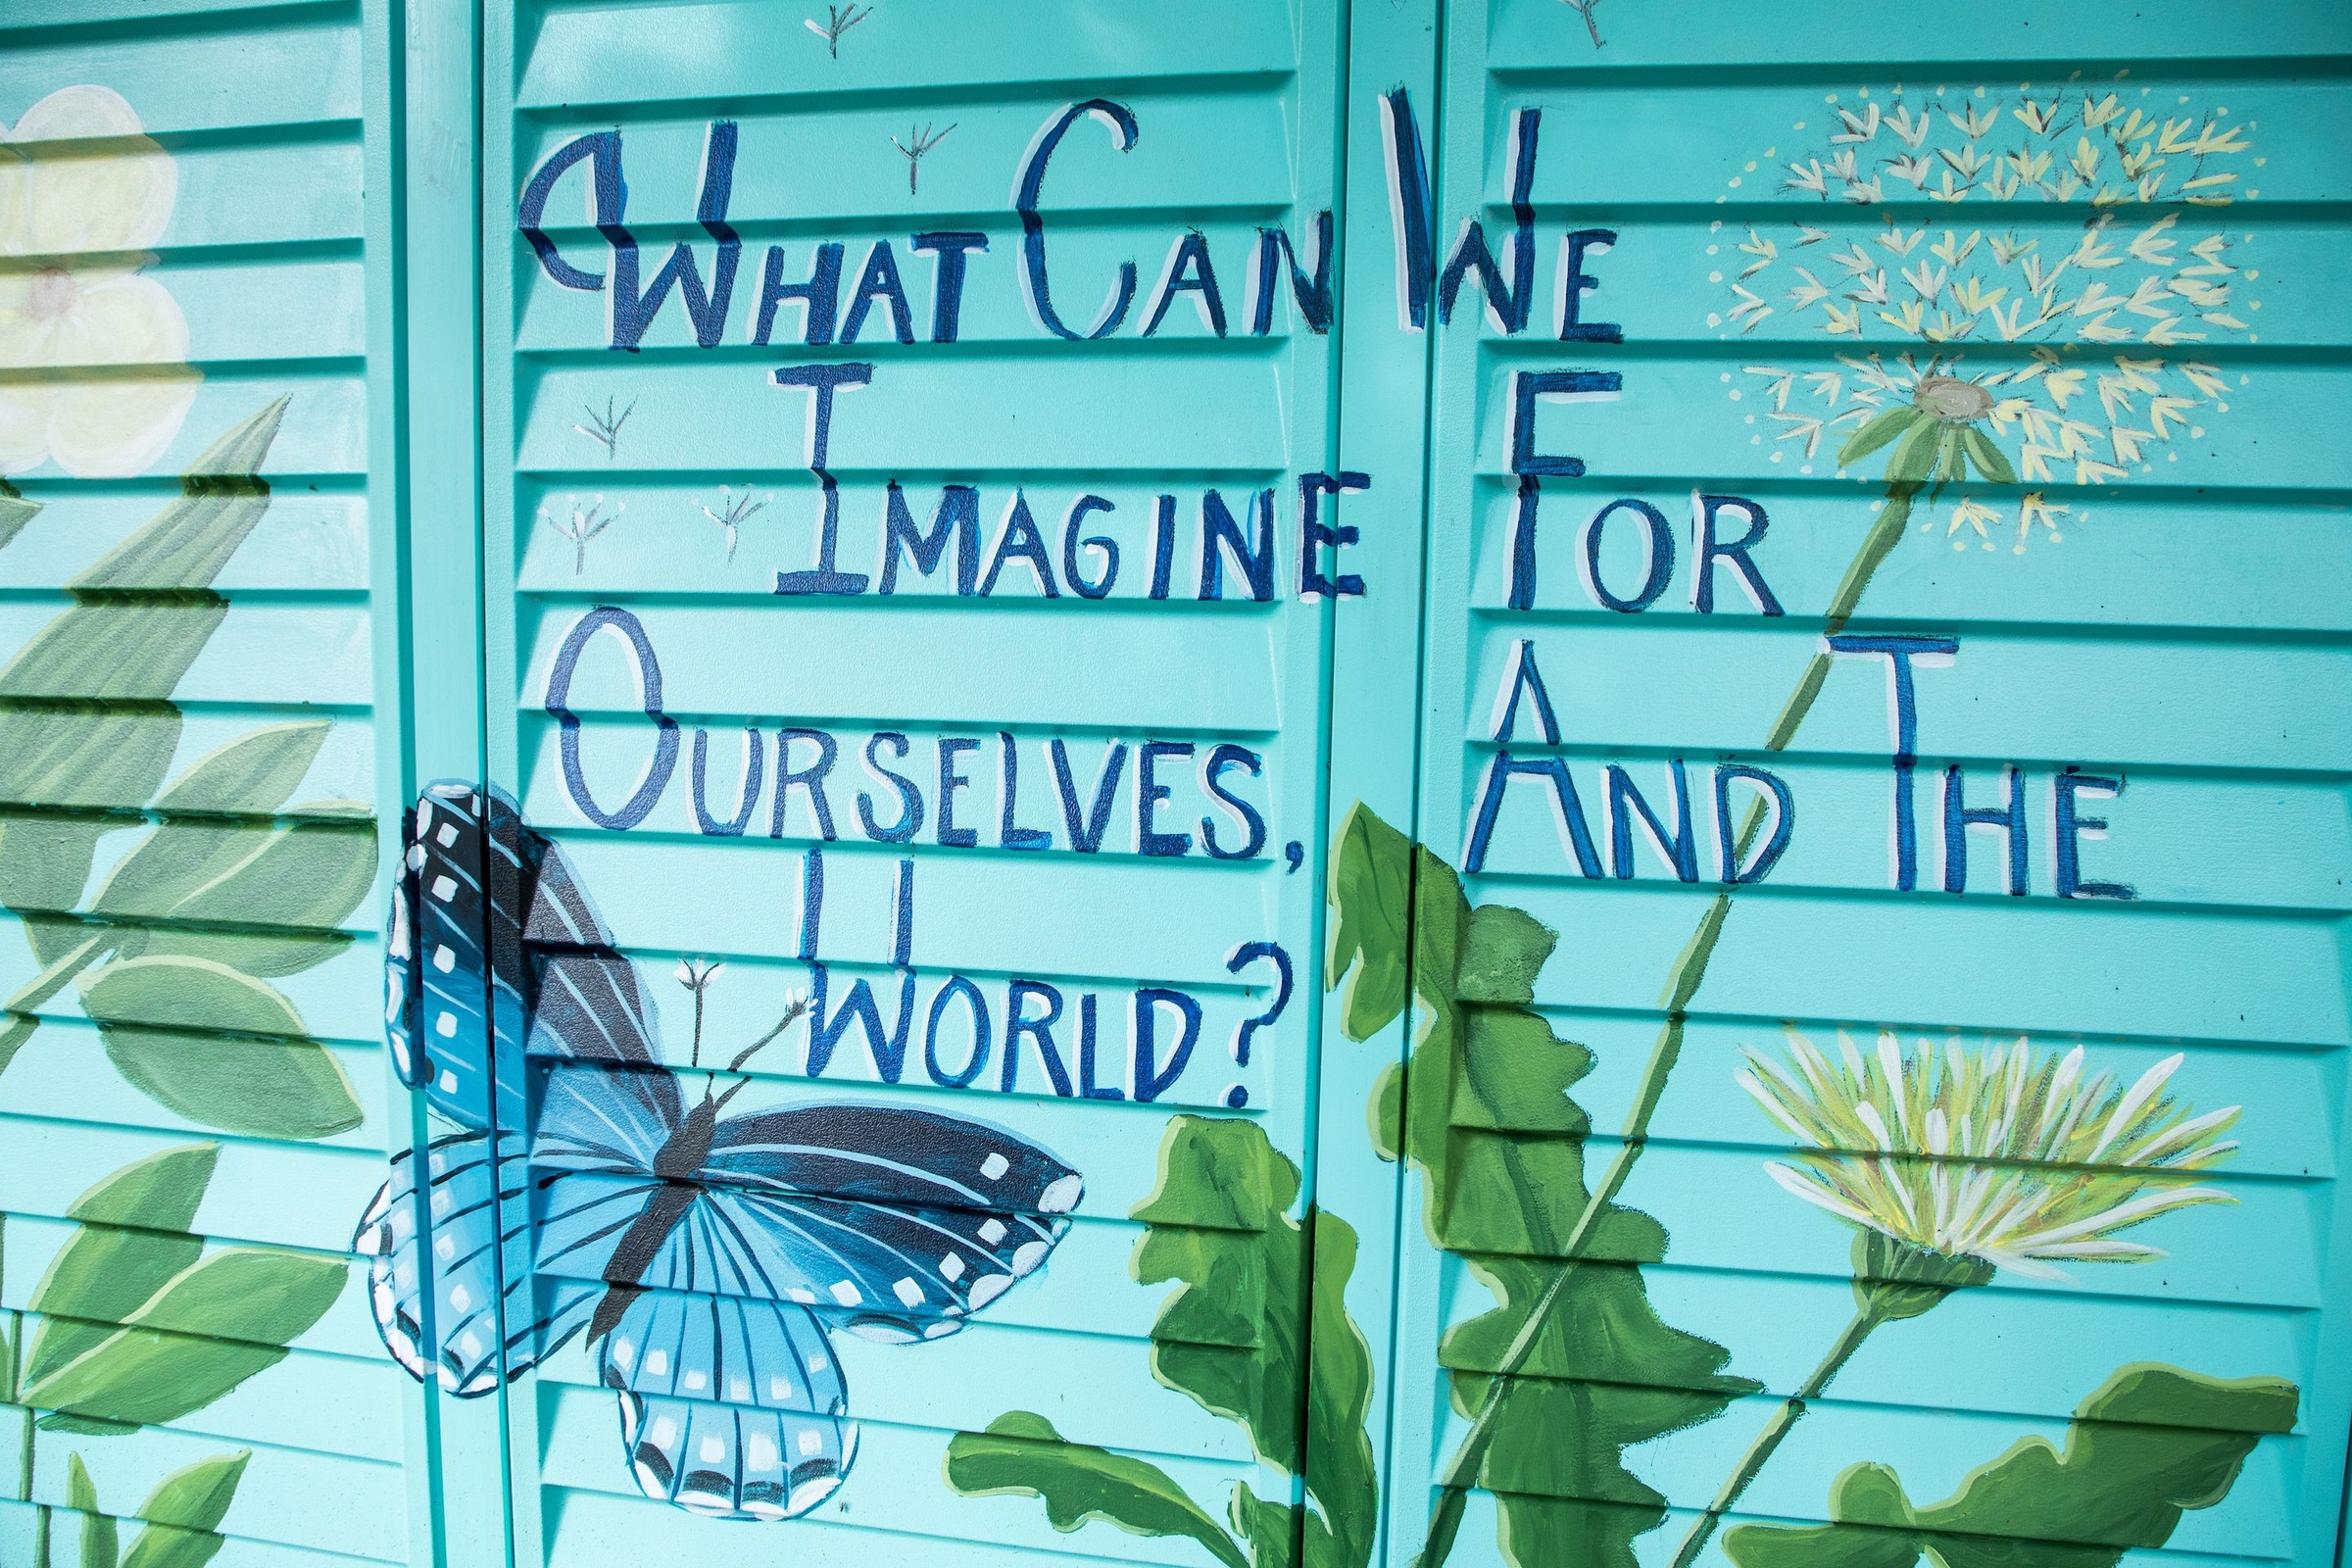 What Can We
Imagine For
Ourselves, And The
World?